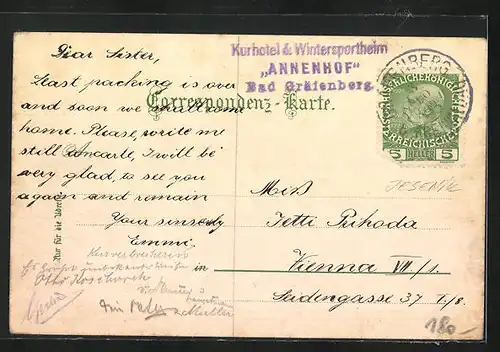 Dear Sister,
Last packing is over
and soon we shall come
home. Please, write me
still a carte, I will be
very glad, to see you
again and remain
Your sincerely
Emmi.
Kurhotel & Wintersportheim
„ANNENHOF"
Bad Gräfenberg.
Correspondenz-Karte.
5 HELLER 5
JESENÍK
Miß
Jetti Prihoda
in Vienna VII/1.
Seidengasse 37 T/8.
Nur für die
Otto
180